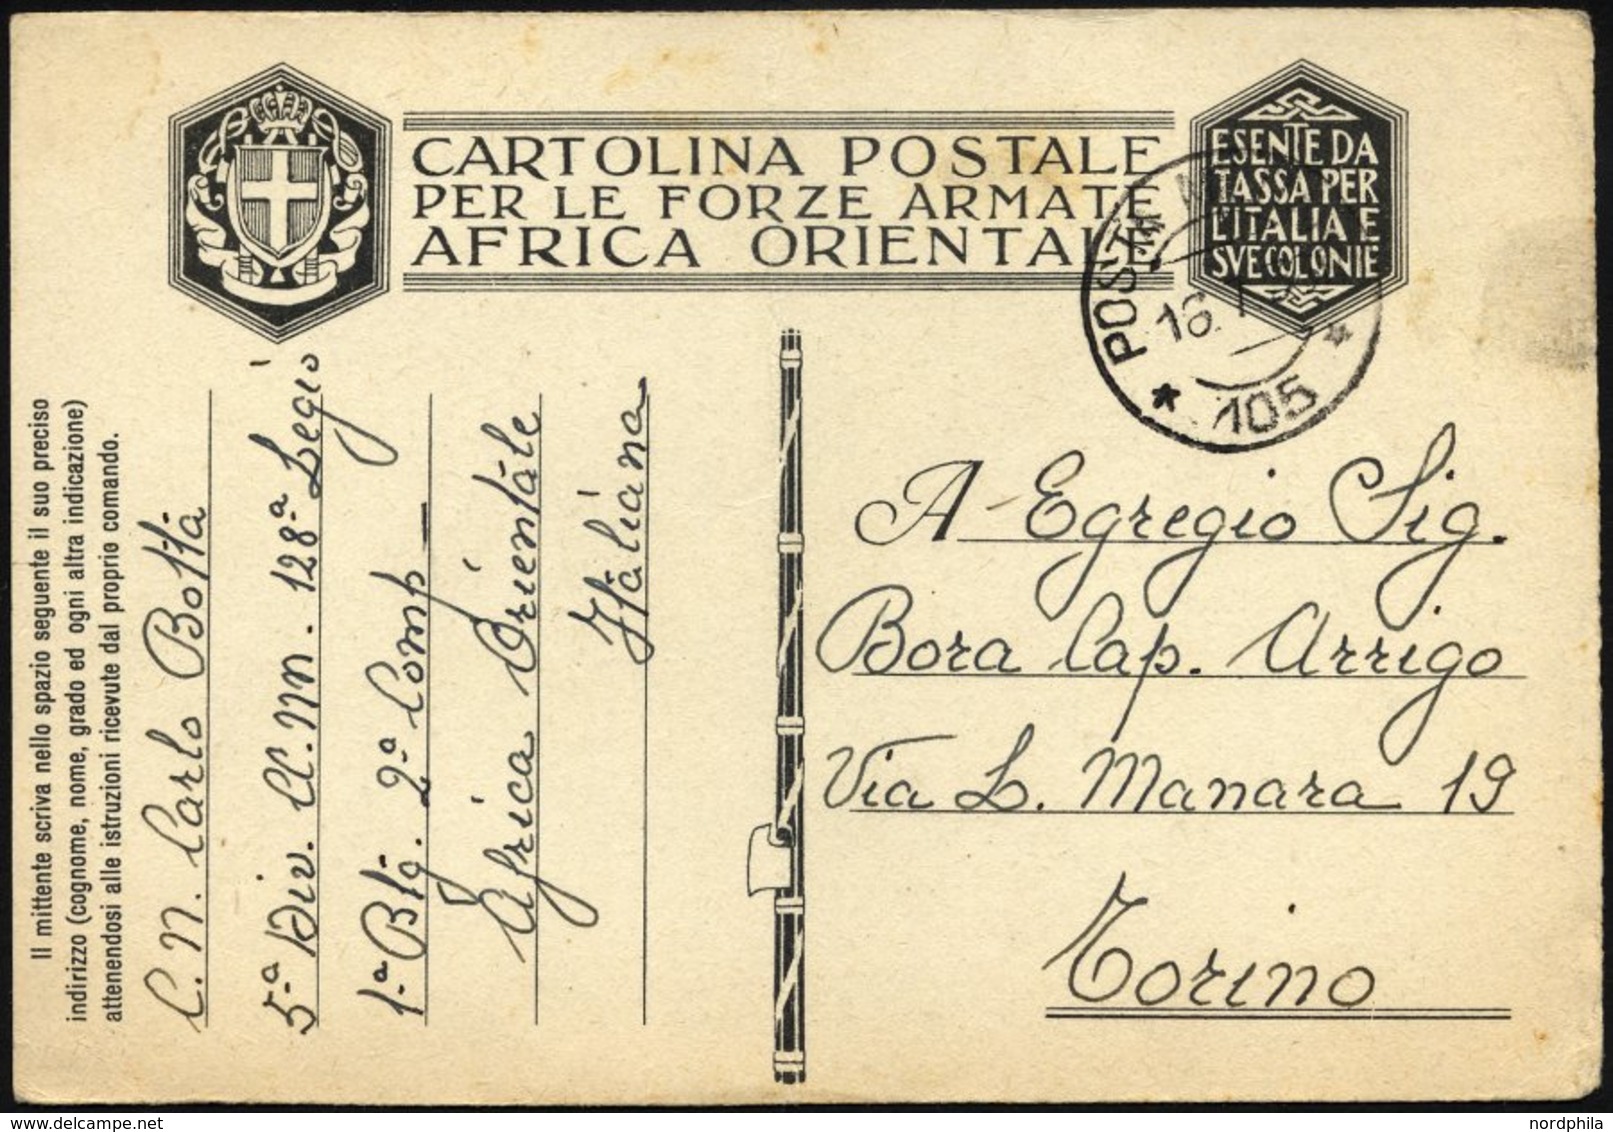 CARTOLINA POSTALE
PER LE FORZE ARMATE
AFRICA ORIENTALE
ESENTE DA
TASSA PER
L'ITALIA E
SVE COLONIE
POSTA
16.
* 105 *
Il mittente scriva nello spazio seguente il suo preciso
indirizzo (cognome, nome, grado ed ogni altra indicazione)
attenendosi alle istruzioni ricevute dal proprio comando.
C.N. Carlo Botta
5.a Div. CC.NN. 128.a Legio
1.a Btg. 2.a Comp -
Africa Orientale
Italiana
A Egregio Sig.
Bora Cap. Arrigo
Via L. Manara 19
Torino
nordphila